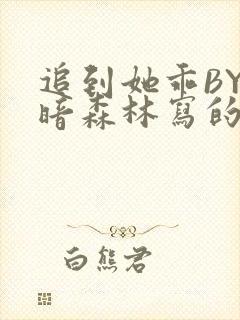 追到她乖BY
暗森林寫的
白熊君